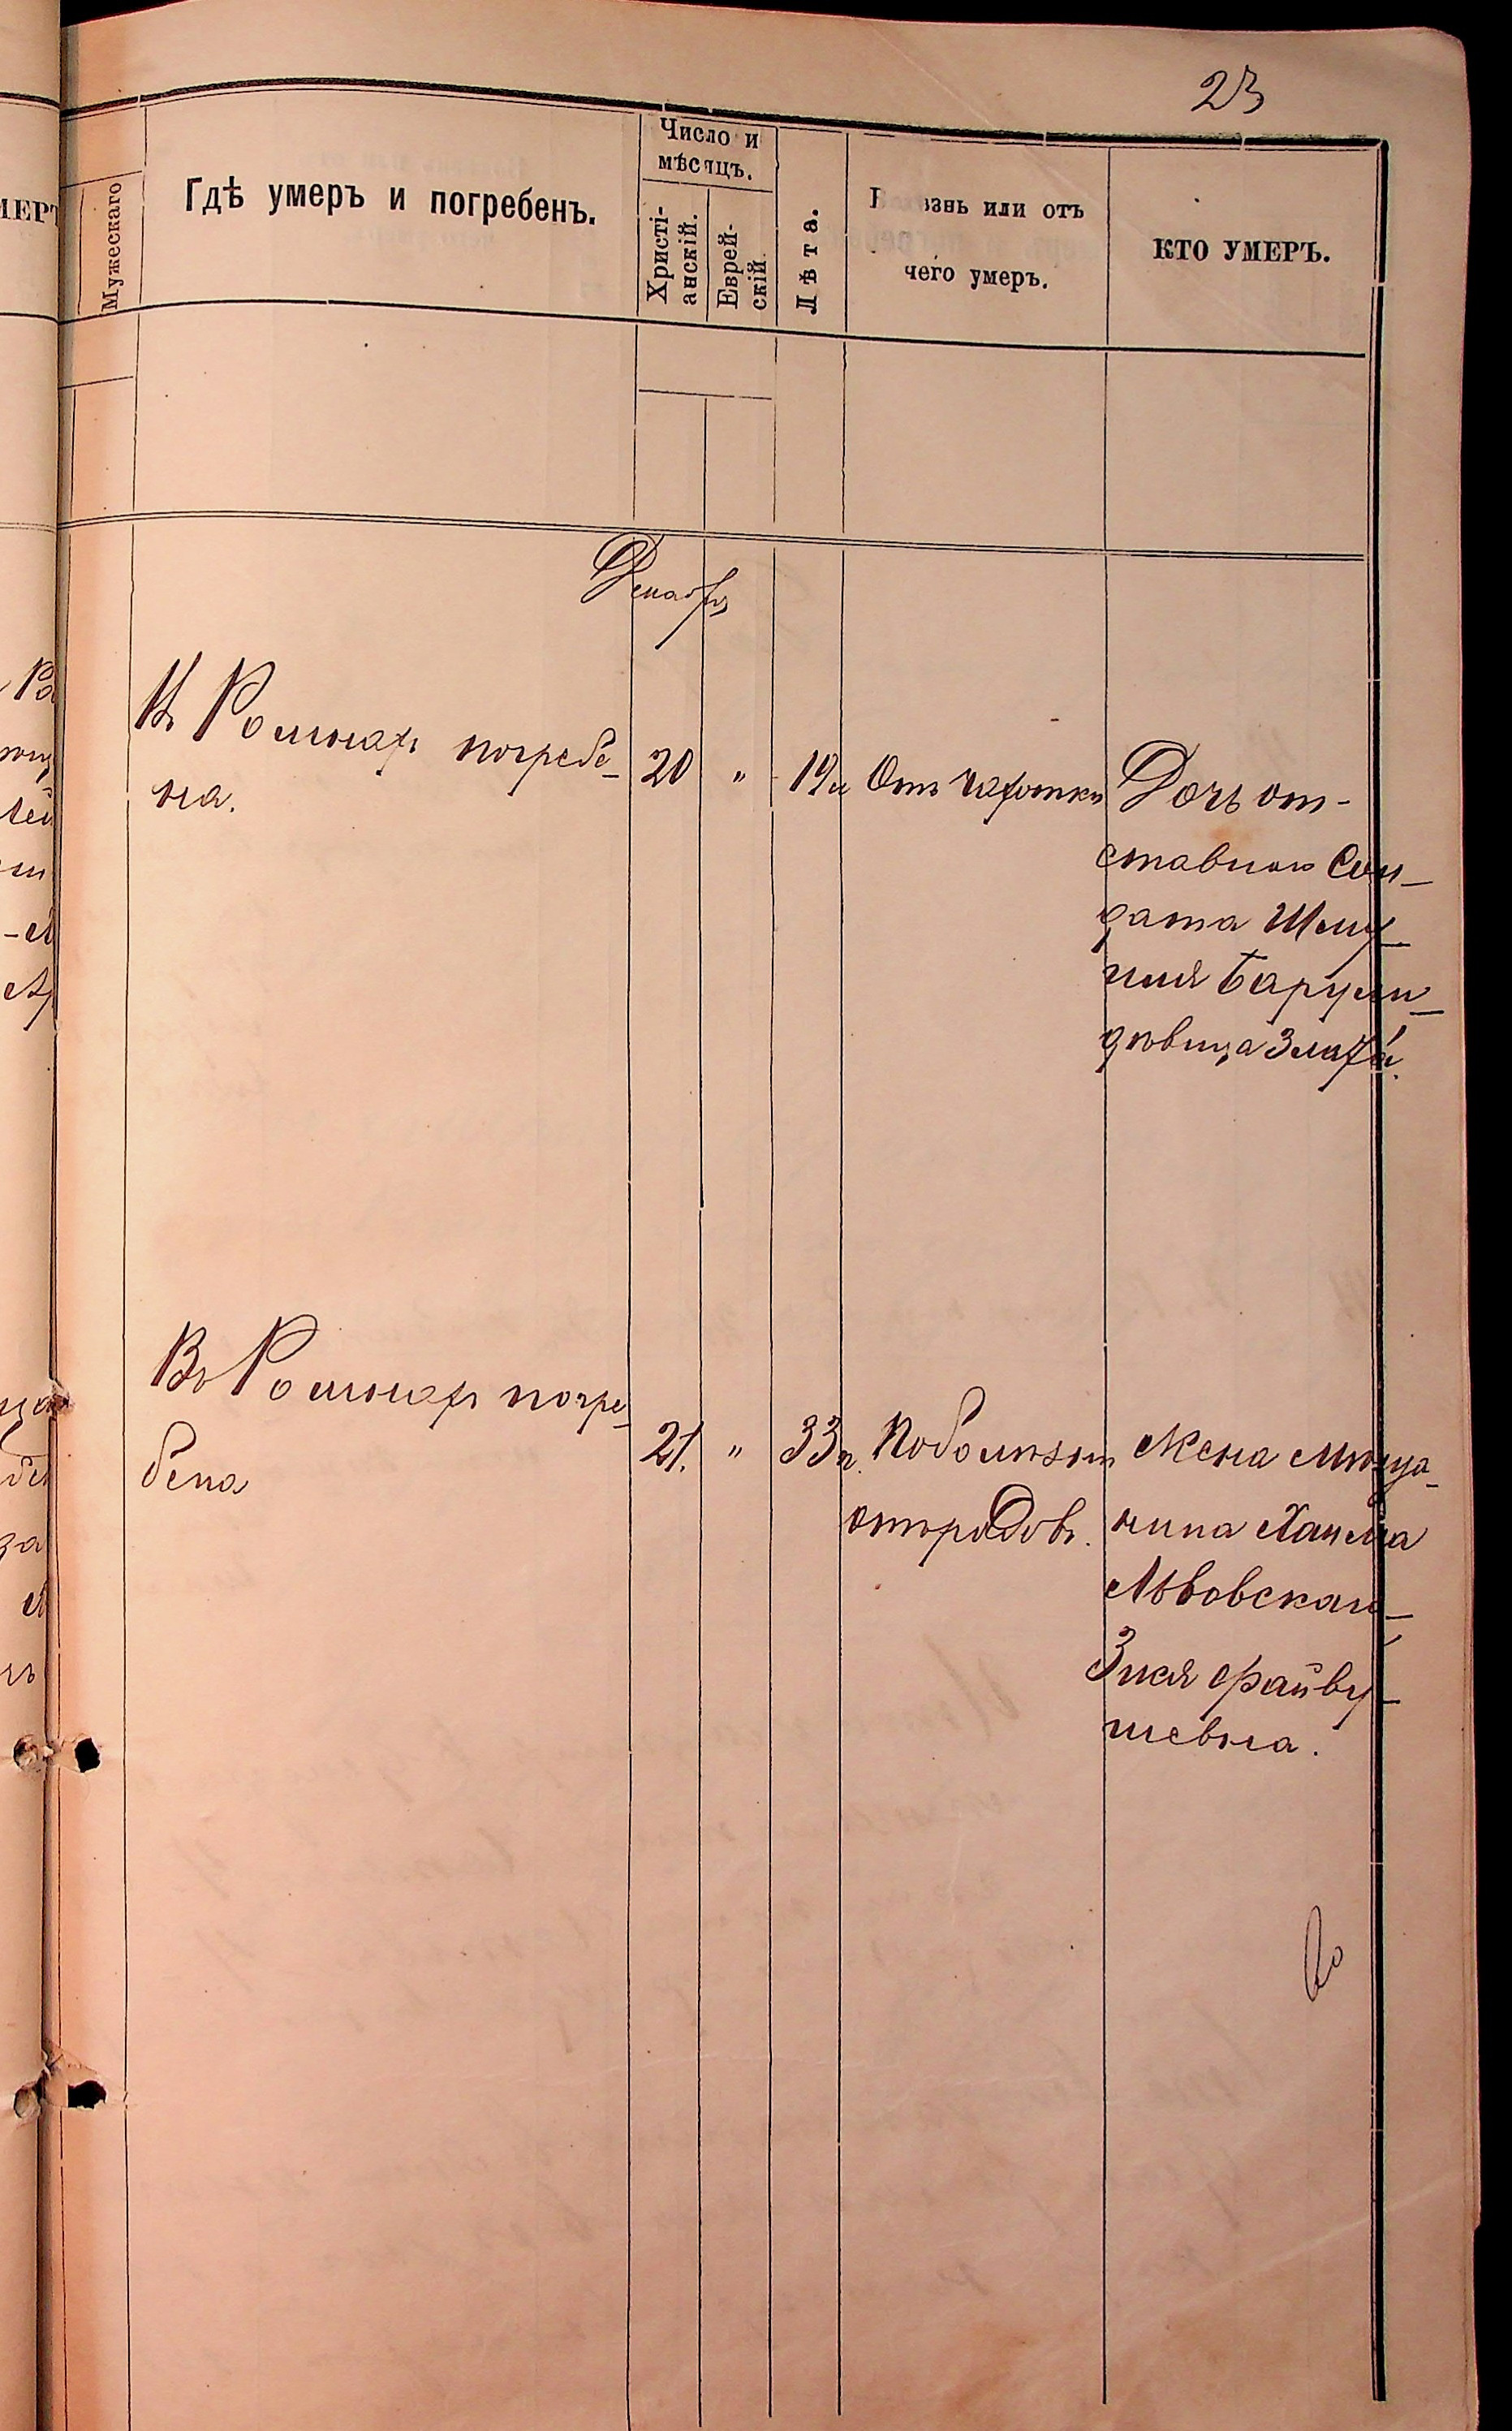 23
МЕРЪ
Мужескаго
Гдѣ умеръ и погребенъ.
Число и
мѣсяцъ.
Христі-
анскій.
Еврей-
скій
Лѣта.
знь или отъ
чего умеръ.
КТО УМЕРЪ.
Декабрь
Въ Ромнахъ погребе-
на.
20 " 19 л Отъ чахотки
Дочь от-
ставного Сол-
дата Шму-
иля
Злата
Въ Ромнахъ погре-
бена
21. " 33 л. По болѣзни
отъ родовъ.
Жена мѣща-
нина Хаима
Львовская
Зися Файву-
шевна.